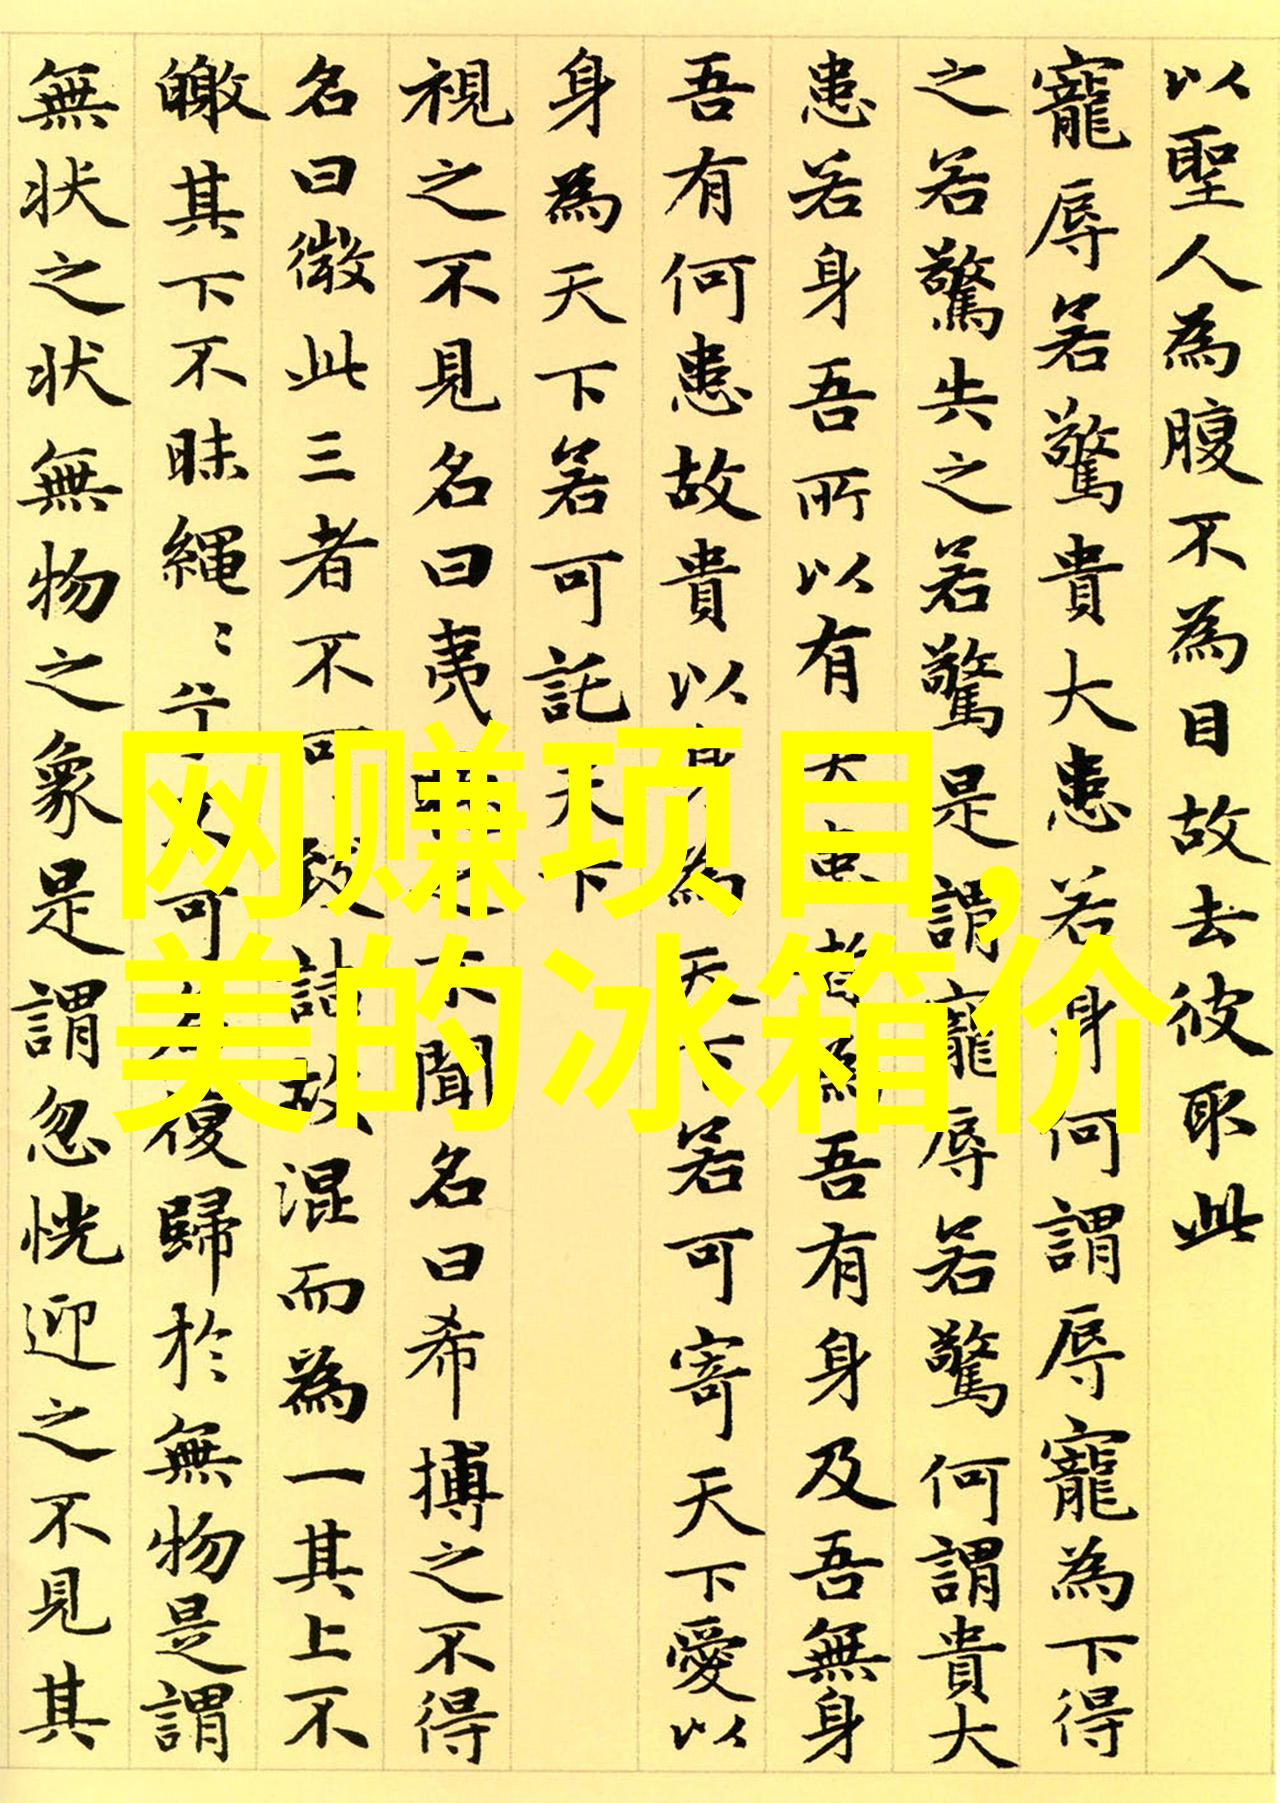 以聖人為腹不為目故去彼取此
寵辱若驚貴大患若身何謂辱寵為下得
之若驚失之若驚是謂寵辱若驚何謂貴大
患若身吾所以有大患者為吾有身及吾無身
吾有何患故貴以身為天下若可寄天下愛以
身為天下若可託天下
視之不見名曰夷之不聞名曰希搏之不得
名曰微此三者不可致詰故混而為一其上不
皦其下不昧繩〻兮不可名復歸於無物是謂
無状之状無物之象是謂忽恍迎之不見其
网赚项目,
美的冰箱价